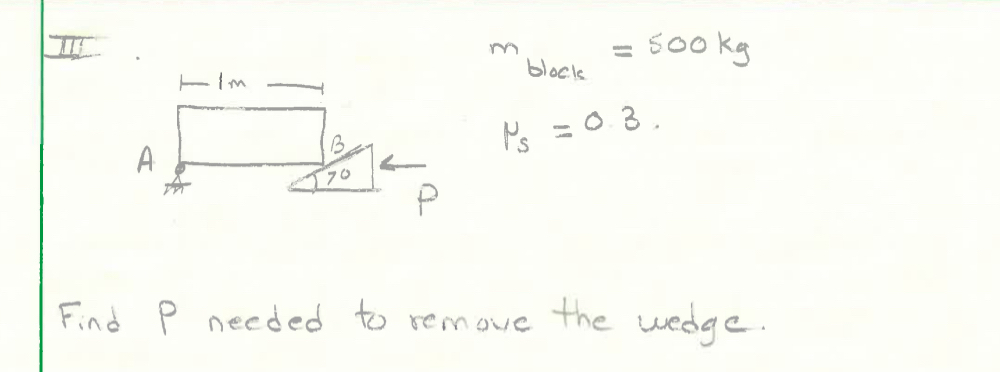 III.
m block = 500 kg
1m
μs = 0.3.
A
B
7°
P
Find P needed to remove the wedge.